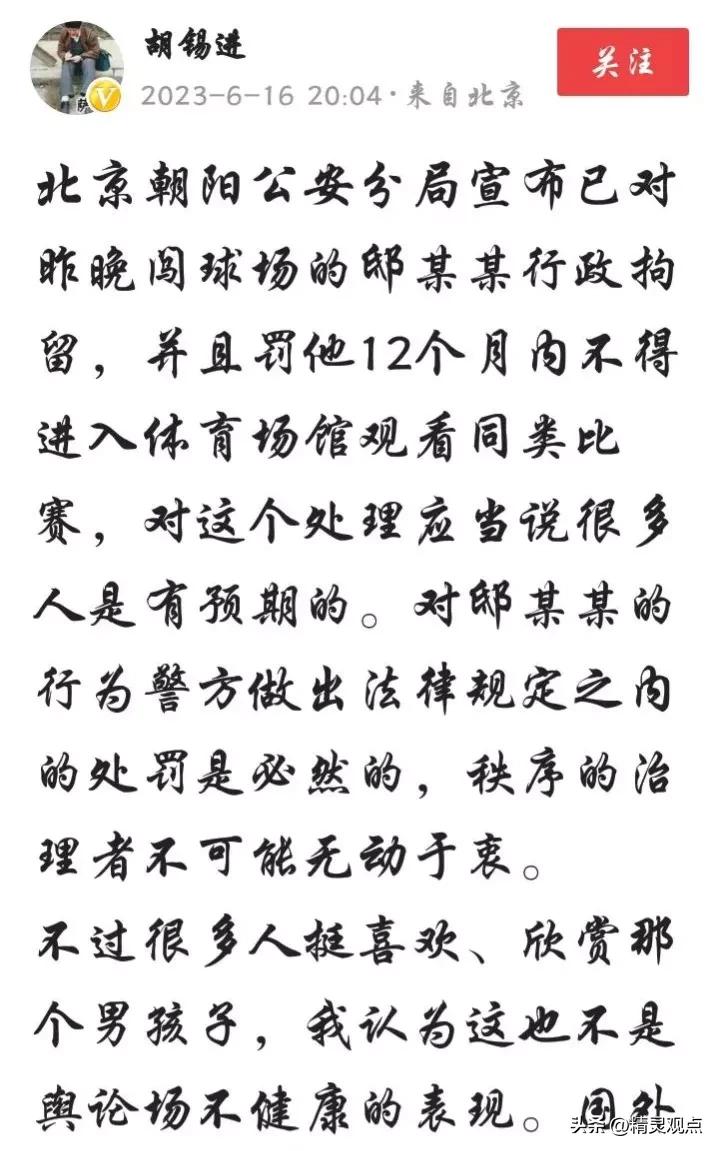 胡锡进
关注
2023-6-16 20:04·来自北京
北京朝阳公安分局宣布已对
昨晚闯球场的邸某某行政拘
留，并且罚他12个月内不得
进入体育场馆观看同类比
赛，对这个处理应当说很多
人是有预期的。对邸某某的
行为警方做出法律规定之内
的处罚是必然的，秩序的治
理者不可能无动于衷。
不过很多人挺喜欢、欣赏那
个男孩子，我认为这也不是
舆论场不健康的表现。国外
头条 @精灵观点